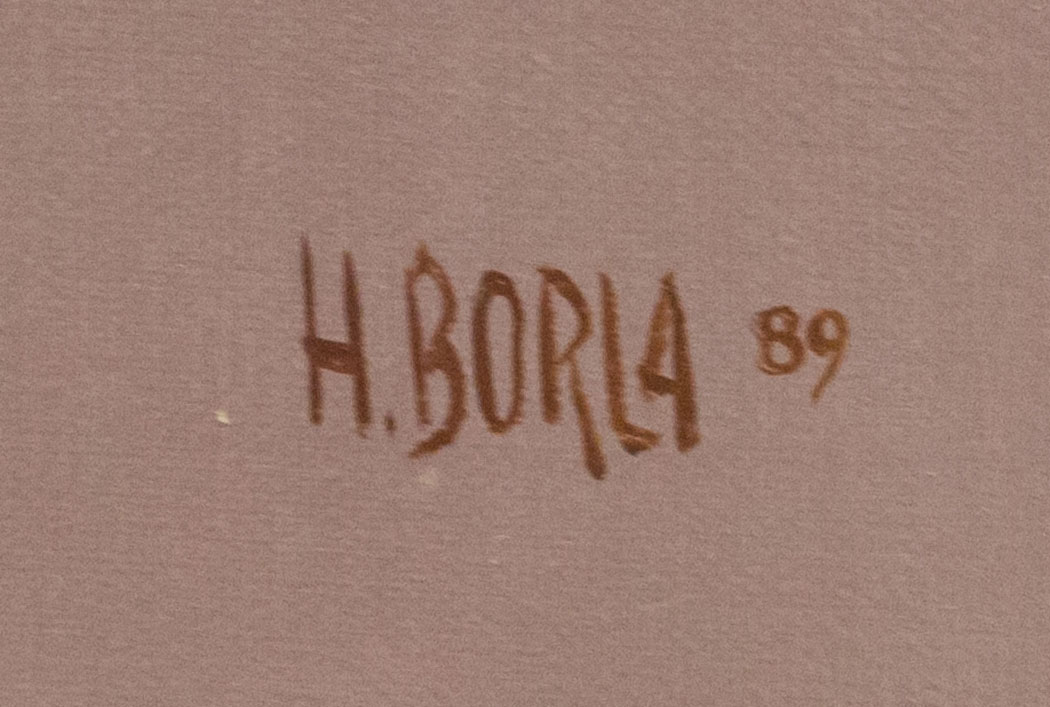 H.BORLA 89